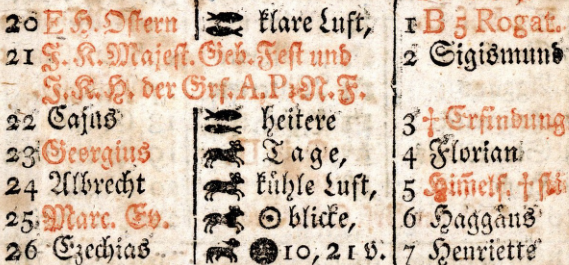 20 E H. Ostern klare Luft, 1 B 5 Rogat.
21 I. K. Majest. Geb. Fest und 2 Sigismund
I. K. H. der Grf. A. P. N. F.
22 Cajus heitere 3 † Erfindung
23 Georgius Tage, 4 Florian
24 Albrecht kühle Luft, 5 Him̃elf. †
25 Marc. Ev. ☉ blicke, 6 Haggäus
26 Ezechias 10, 21 v. 7 Henriette